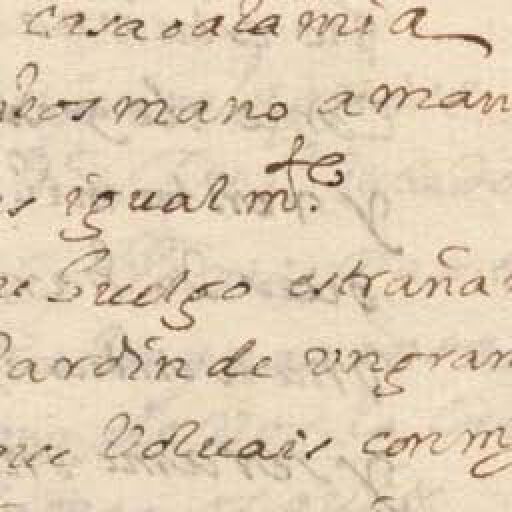 casa oala mia
mano a man
igual m.te
huelgo estraña
Jardin de vngran
Voluais con m